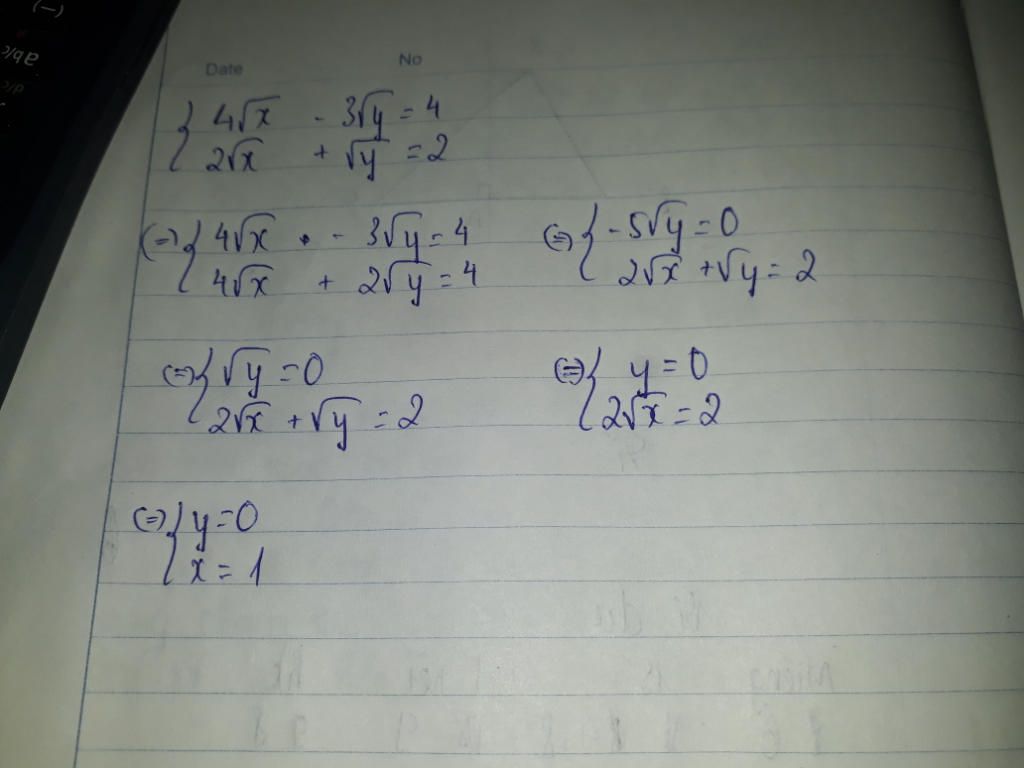 Date No
{ 4√x - 3√y = 4
2√x + √y = 2
(=) { 4√x - 3√y = 4
4√x + 2√y = 4
(=) { -5√y = 0
2√x + √y = 2
(=) { √y = 0
2√x + √y = 2
(=) { y = 0
2√x = 2
(=) { y = 0
x = 1